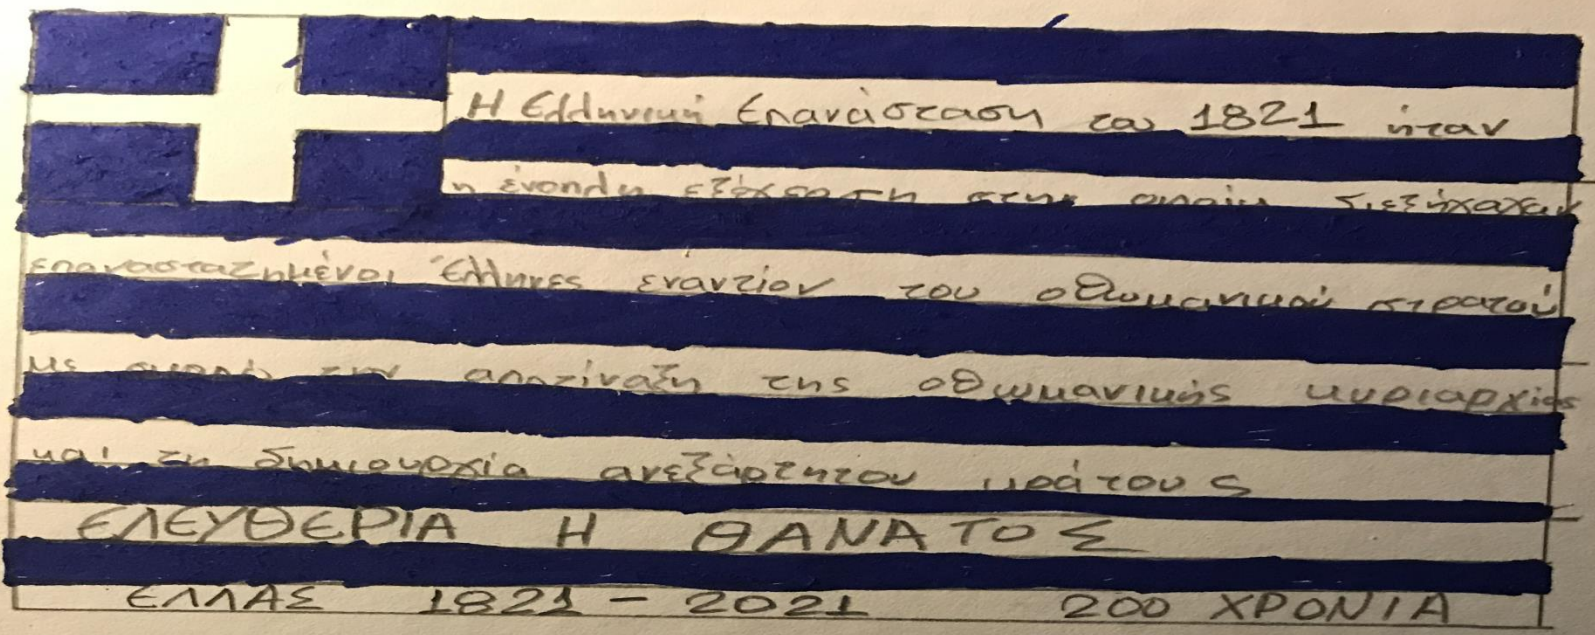 Η Ελληνική Επανάσταση του 1821 ήταν
η ένοπλη εξέγερση στην οποία διεξήγαγαν
επαναστατημένοι Έλληνες εναντίον του οθωμανικού στρατού
με σκοπό την αποτίναξη της οθωμανικής κυριαρχίας
και τη δημιουργία ανεξάρτητου κράτους
ΕΛΕΥΘΕΡΙΑ Η ΘΑΝΑΤΟΣ
ΕΛΛΑΣ 1821 - 2021 200 ΧΡΟΝΙΑ